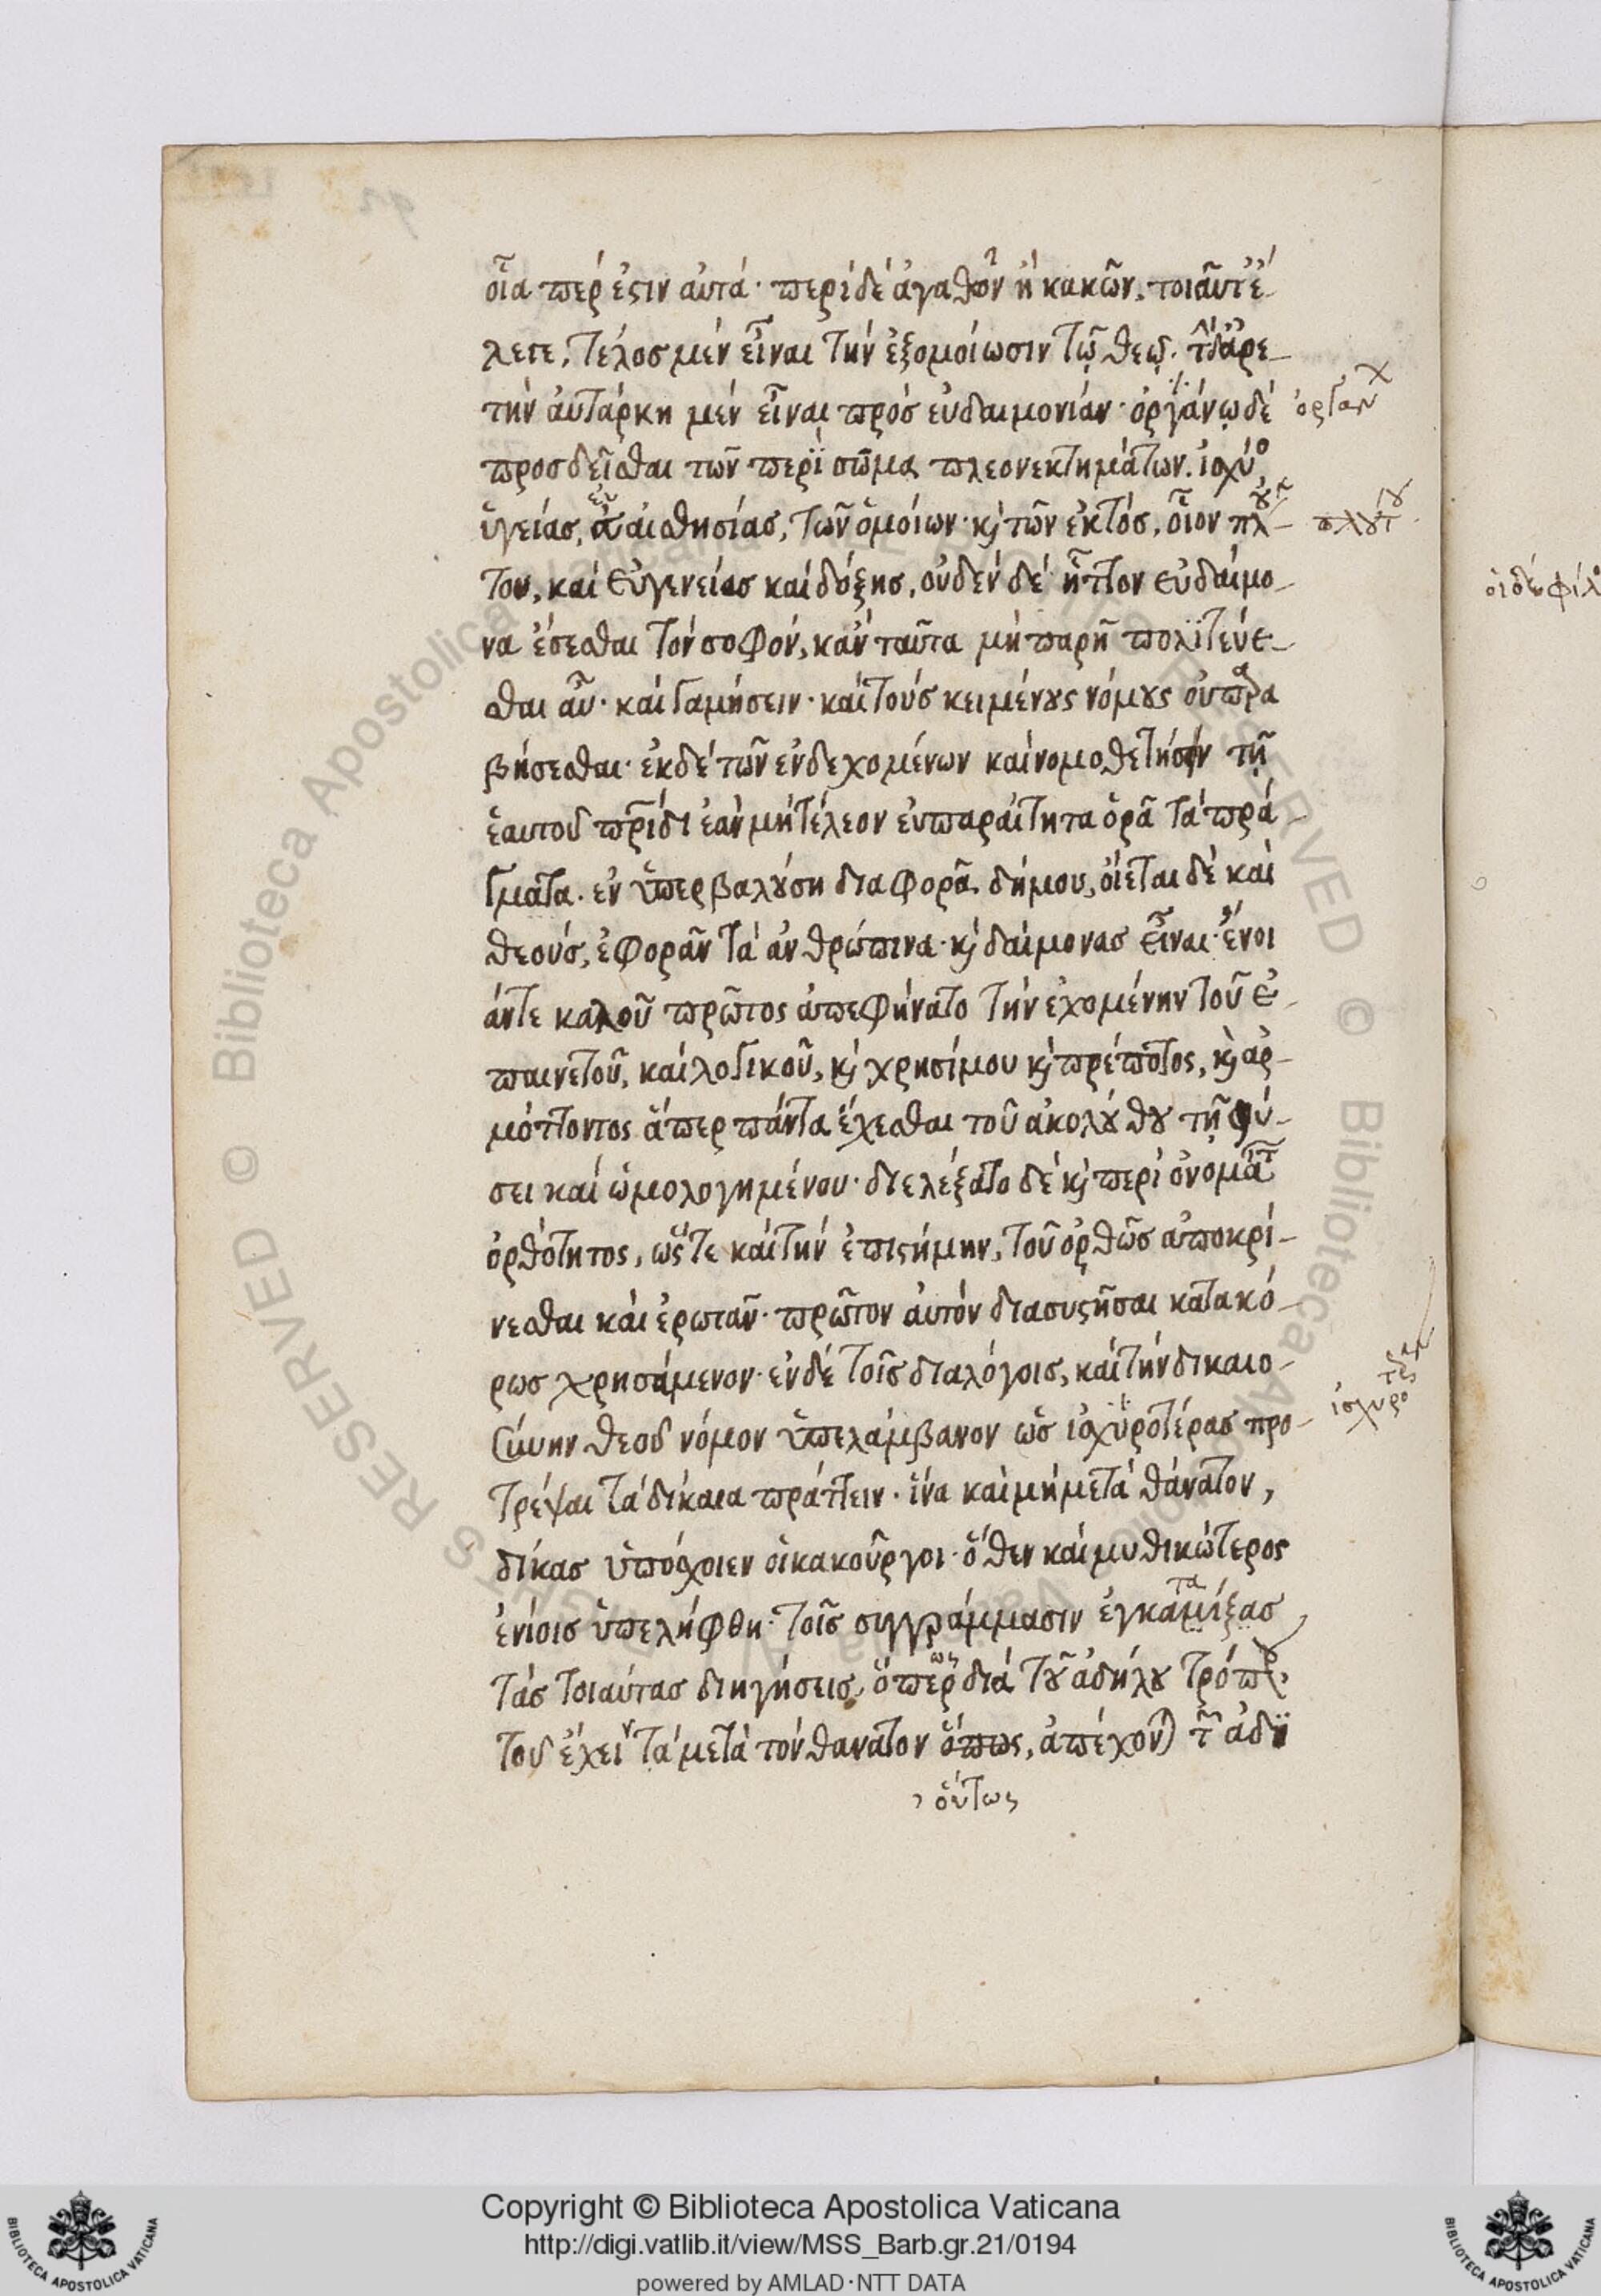 οἷα περ ἐστιν αὐτά· περὶ δὲ ἀγαθῶν ἢ κακῶν, τοιαῦτ' ἔ-
λεγε, τέλος μὲν εἶναι τὴν ἐξομοίωσιν τῷ θεῷ. τὴν δ' ἀρε-
τὴν αὐτάρκη μὲν εἶναι πρὸς εὐδαιμονίαν· ὀργάνῳ δὲ
προσδεῖσθαι τῶν περὶ σῶμα πλεονεκτημάτων. ἰσχύος
ὑγείας, εὐαισθησίας, τῶν ὁμοίων· κ τῶν ἐκτός, οἷον πλού-
του, καὶ εὐγενείας καὶ δόξης, οὐδὲν δὲ ἧττον εὐδαίμο-
να ἔσεσθαι τὸν σοφόν, κἂν ταῦτα μὴ παρῇ πολιτεύε-
σθαι αὖ· καὶ γαμήσειν· καὶ τοὺς κειμένους νόμους οὐ παρα
βήσεσθαι· ἐκ δὲ τῶν ἐνδεχομένων καὶ νομοθετήσειν τῇ
ἑαυτοῦ πρίδι ἐὰν μὴ τέλεον εὐπαραίτητα ὁρᾷ τὰ πρά-
γματα. ἐν ὑπερβαλούσῃ διαφορᾷ δήμου, οἴεται δὲ καὶ
θεούς, ἐφορᾶν τὰ ἀνθρώπινα· κ δαίμονας εἶναι·
τε καλοῦ πρῶτος ἀπεφήνατο τὴν ἐχομένην τοῦ ἐ-
παινετοῦ, καὶ λογικοῦ, κ χρησίμου κ πρέποντος, κ ἁρ-
μόττοντος ἅπερ πάντα ἔχεσθαι τοῦ ἀκολούθου τῇ φύ-
σει καὶ ὡμολογημένου· διελέξατο δὲ κ περὶ ὀνομάτ
ὀρθότητος, ὥστε καὶ τὴν ἐπιστήμην, τοῦ ὀρθῶς ἀποκρί-
νεσθαι καὶ ἐρωτᾶν· πρῶτον αὐτὸν διασυστῆσαι κατακό-
ρως χρησάμενον· ἐν δὲ τοῖς διαλόγοις, καὶ τὴν δικαιο-
σύνην θεοῦ νόμον ὑπελάμβανον ὡς ἰσχυροτέρας προ-
τρέψαι τὰ δίκαια πράττειν· ἵνα καὶ μὴ μετὰ θάνατον,
δίκας ὑπόσχοιεν οἱ κακοῦργοι· ὅθεν καὶ μυθικώτερος
ἐνίοις ὑπελήφθη· τοῖς συγγράμμασιν ἐγκαταμίξας
τὰς τοιαύτας διηγήσεις, ὅπερ διὰ τοῦ ἀδήλου τρόπου
τοῦ ἔχειν τὰ μετὰ τὸν θάνατον ὅπως, ἀπέχον τ ἀδι
οὕτως
ὀργαν
πλουτ
ἰσχυρο
οἱ δὲ φίλ
Copyright © Biblioteca Apostolica Vaticana
http://digi.vatlib.it/view/MSS_Barb.gr.21/0194
powered by AMLAD·NTT DATA
BIBLIOTECA APOSTOLICA VATICANA
BIBLIOTECA APOSTOLICA VATICANA